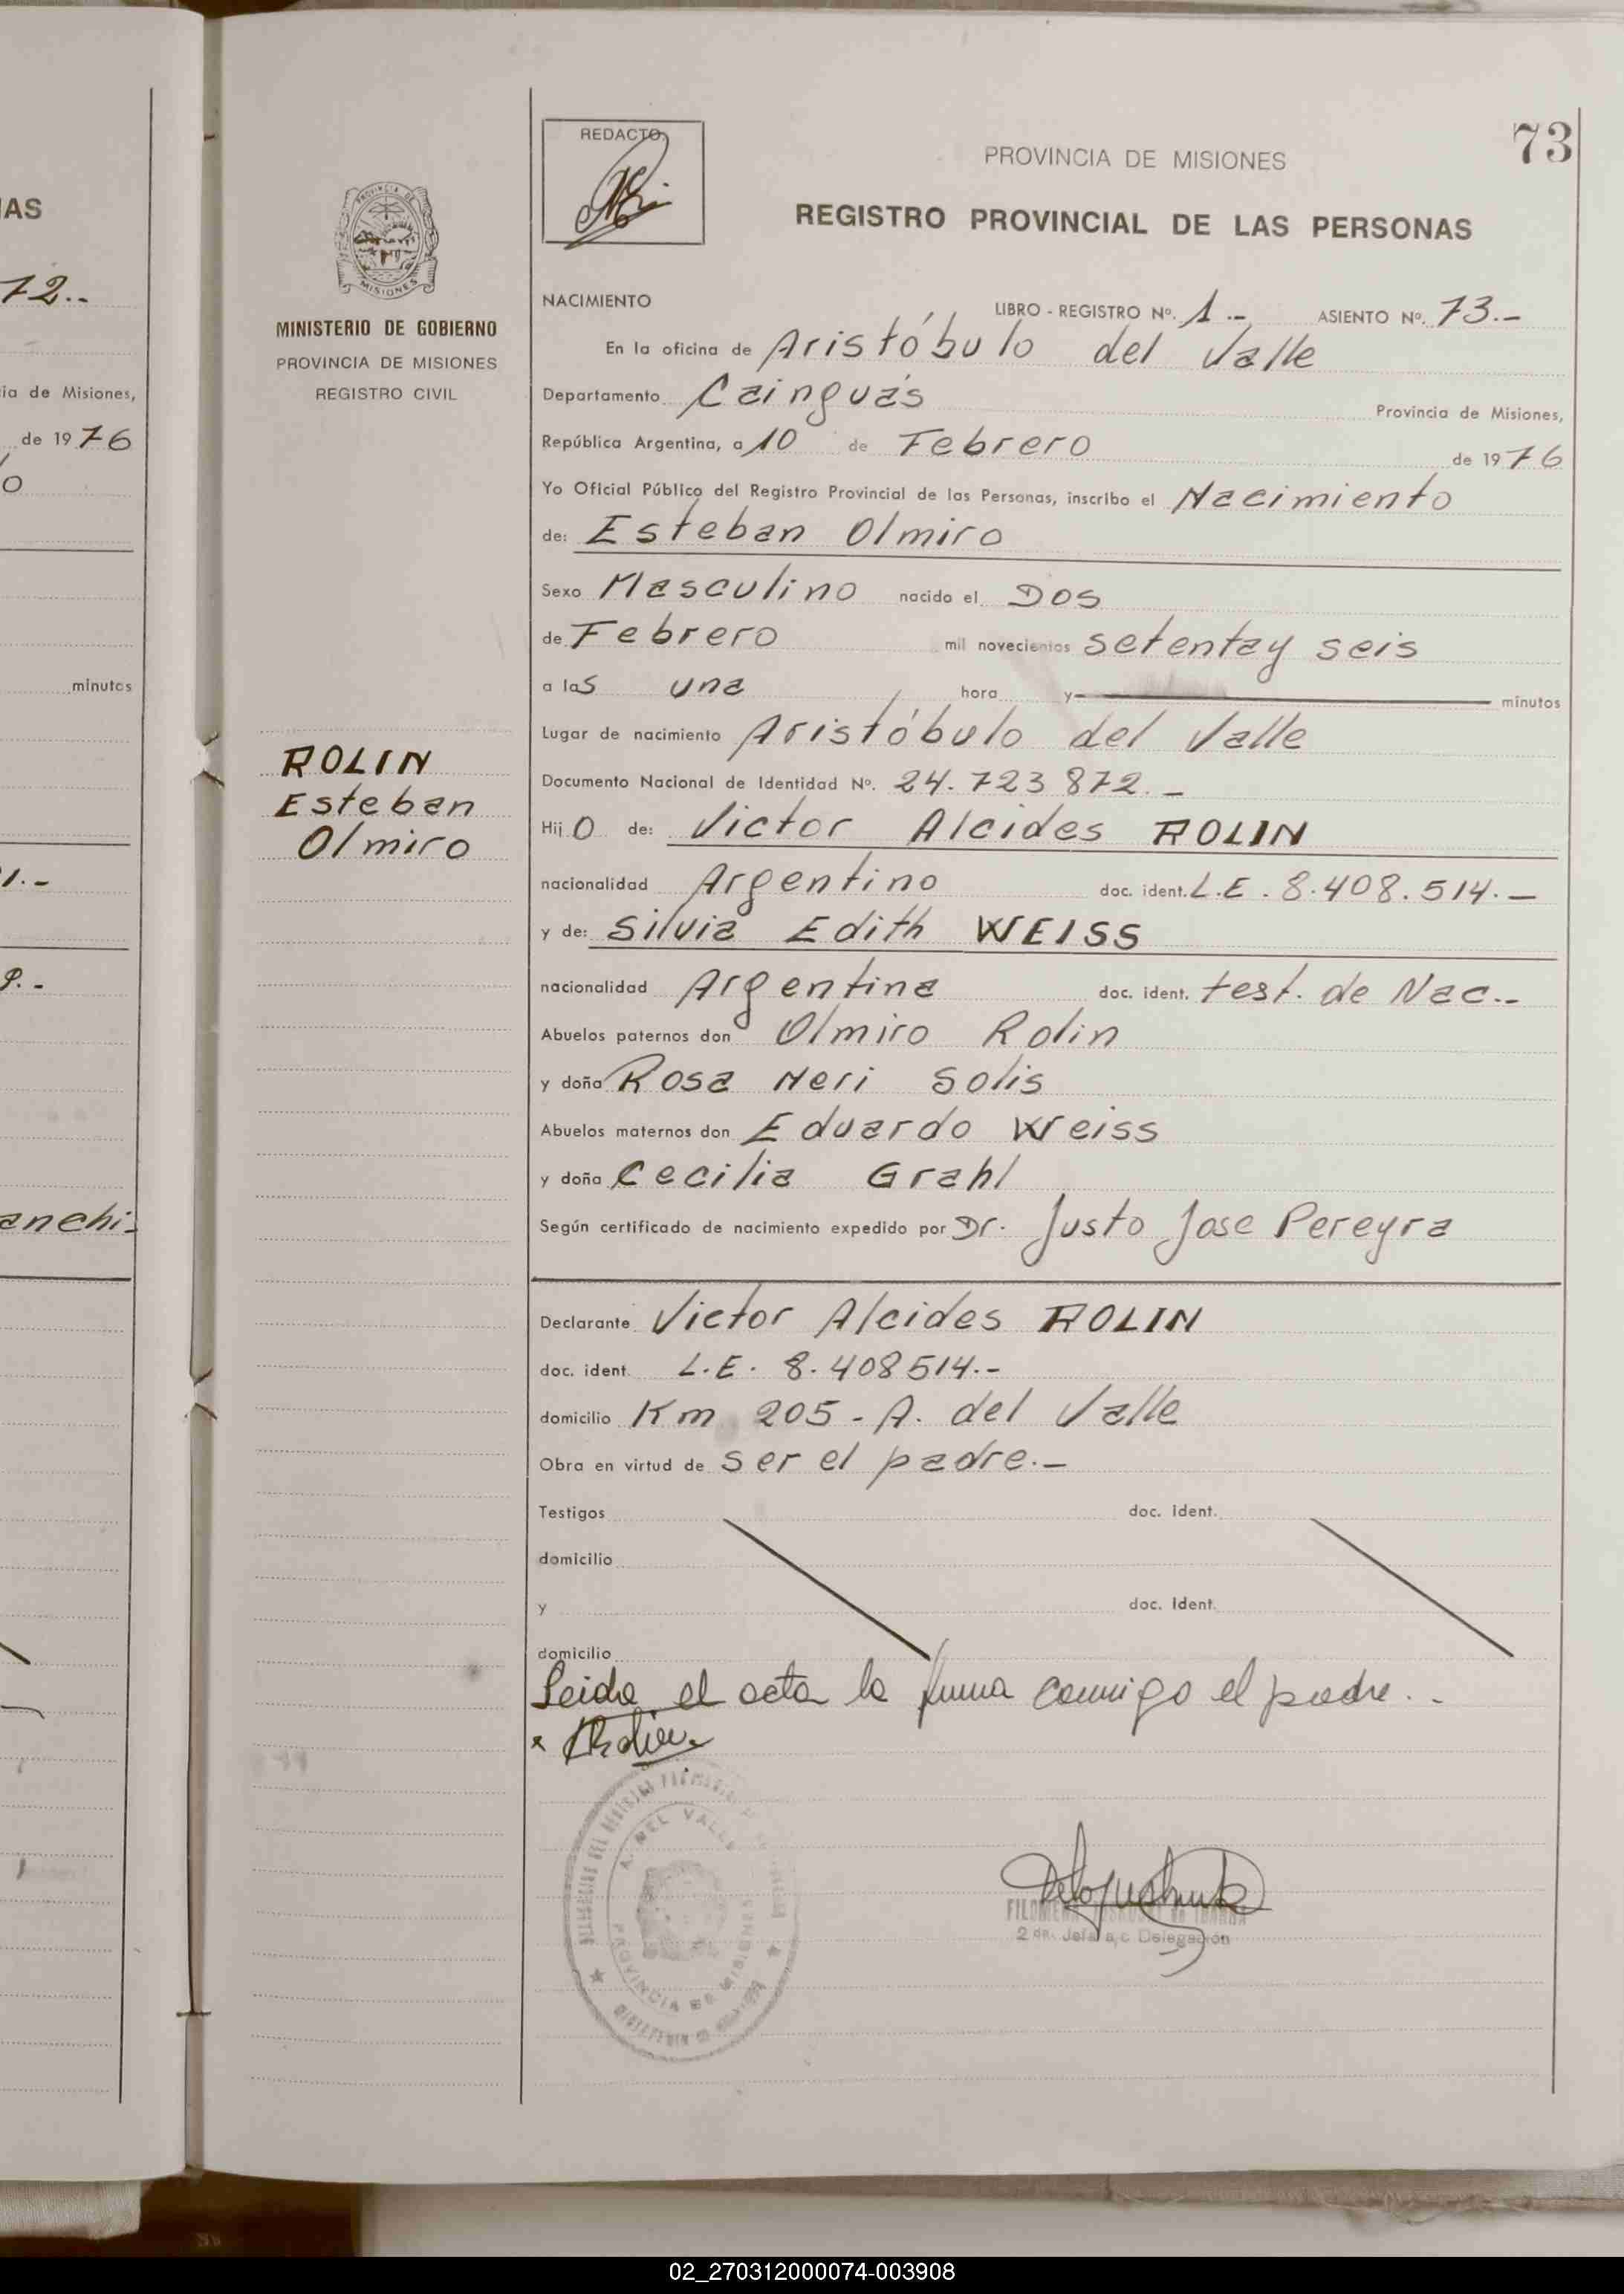 IAS
72..
ia de Misiones,
de 1976
o
minutos
1.-
9.-
anchi-
MINISTERIO DE GOBIERNO
PROVINCIA DE MISIONES
REGISTRO CIVIL
ROLIN
Esteban
Olmiro
REDACTO
73
PROVINCIA DE MISIONES
REGISTRO PROVINCIAL DE LAS PERSONAS
NACIMIENTO LIBRO - REGISTRO Nº. 1.- ASIENTO Nº. 73.-
En la oficina de Aristóbulo del Valle
Departamento Cainguás Provincia de Misiones,
República Argentina, a 10 de Febrero de 1976
Yo Oficial Público del Registro Provincial de las Personas, inscribo el Nacimiento
de: Esteban Olmiro
Sexo Masculino nacido el Dos
de Febrero mil novecientos setenta y seis
a las una hora y minutos
Lugar de nacimiento Aristóbulo del Valle
Documento Nacional de Identidad Nº. 24.723872.-
Hijo de: Victor Alcides ROLIN
nacionalidad Argentino doc. ident. L.E. 8.408.514.-
y de: Silvia Edith WEISS
nacionalidad Argentina doc. ident. test. de Nac.-
Abuelos paternos don Olmiro Rolin
y doña Rosa Neri Solis
Abuelos maternos don Eduardo Weiss
y doña Cecilia Grahl
Según certificado de nacimiento expedido por Dr. Justo Jose Pereyra
Declarante Victor Alcides ROLIN
doc. ident. L.E. 8.408514.-
domicilio Km 205 - A. del Valle
Obra en virtud de ser el padre.-
Testigos doc. ident.
domicilio
y doc. ident.
domicilio
Leida el acta la firma conmigo el padre.-
x Rolin
A. DEL VALLE
PROVINCIA DE MISIONES
FILOMENA
2da. Jefa a/c Delegación
02_270312000074-003908